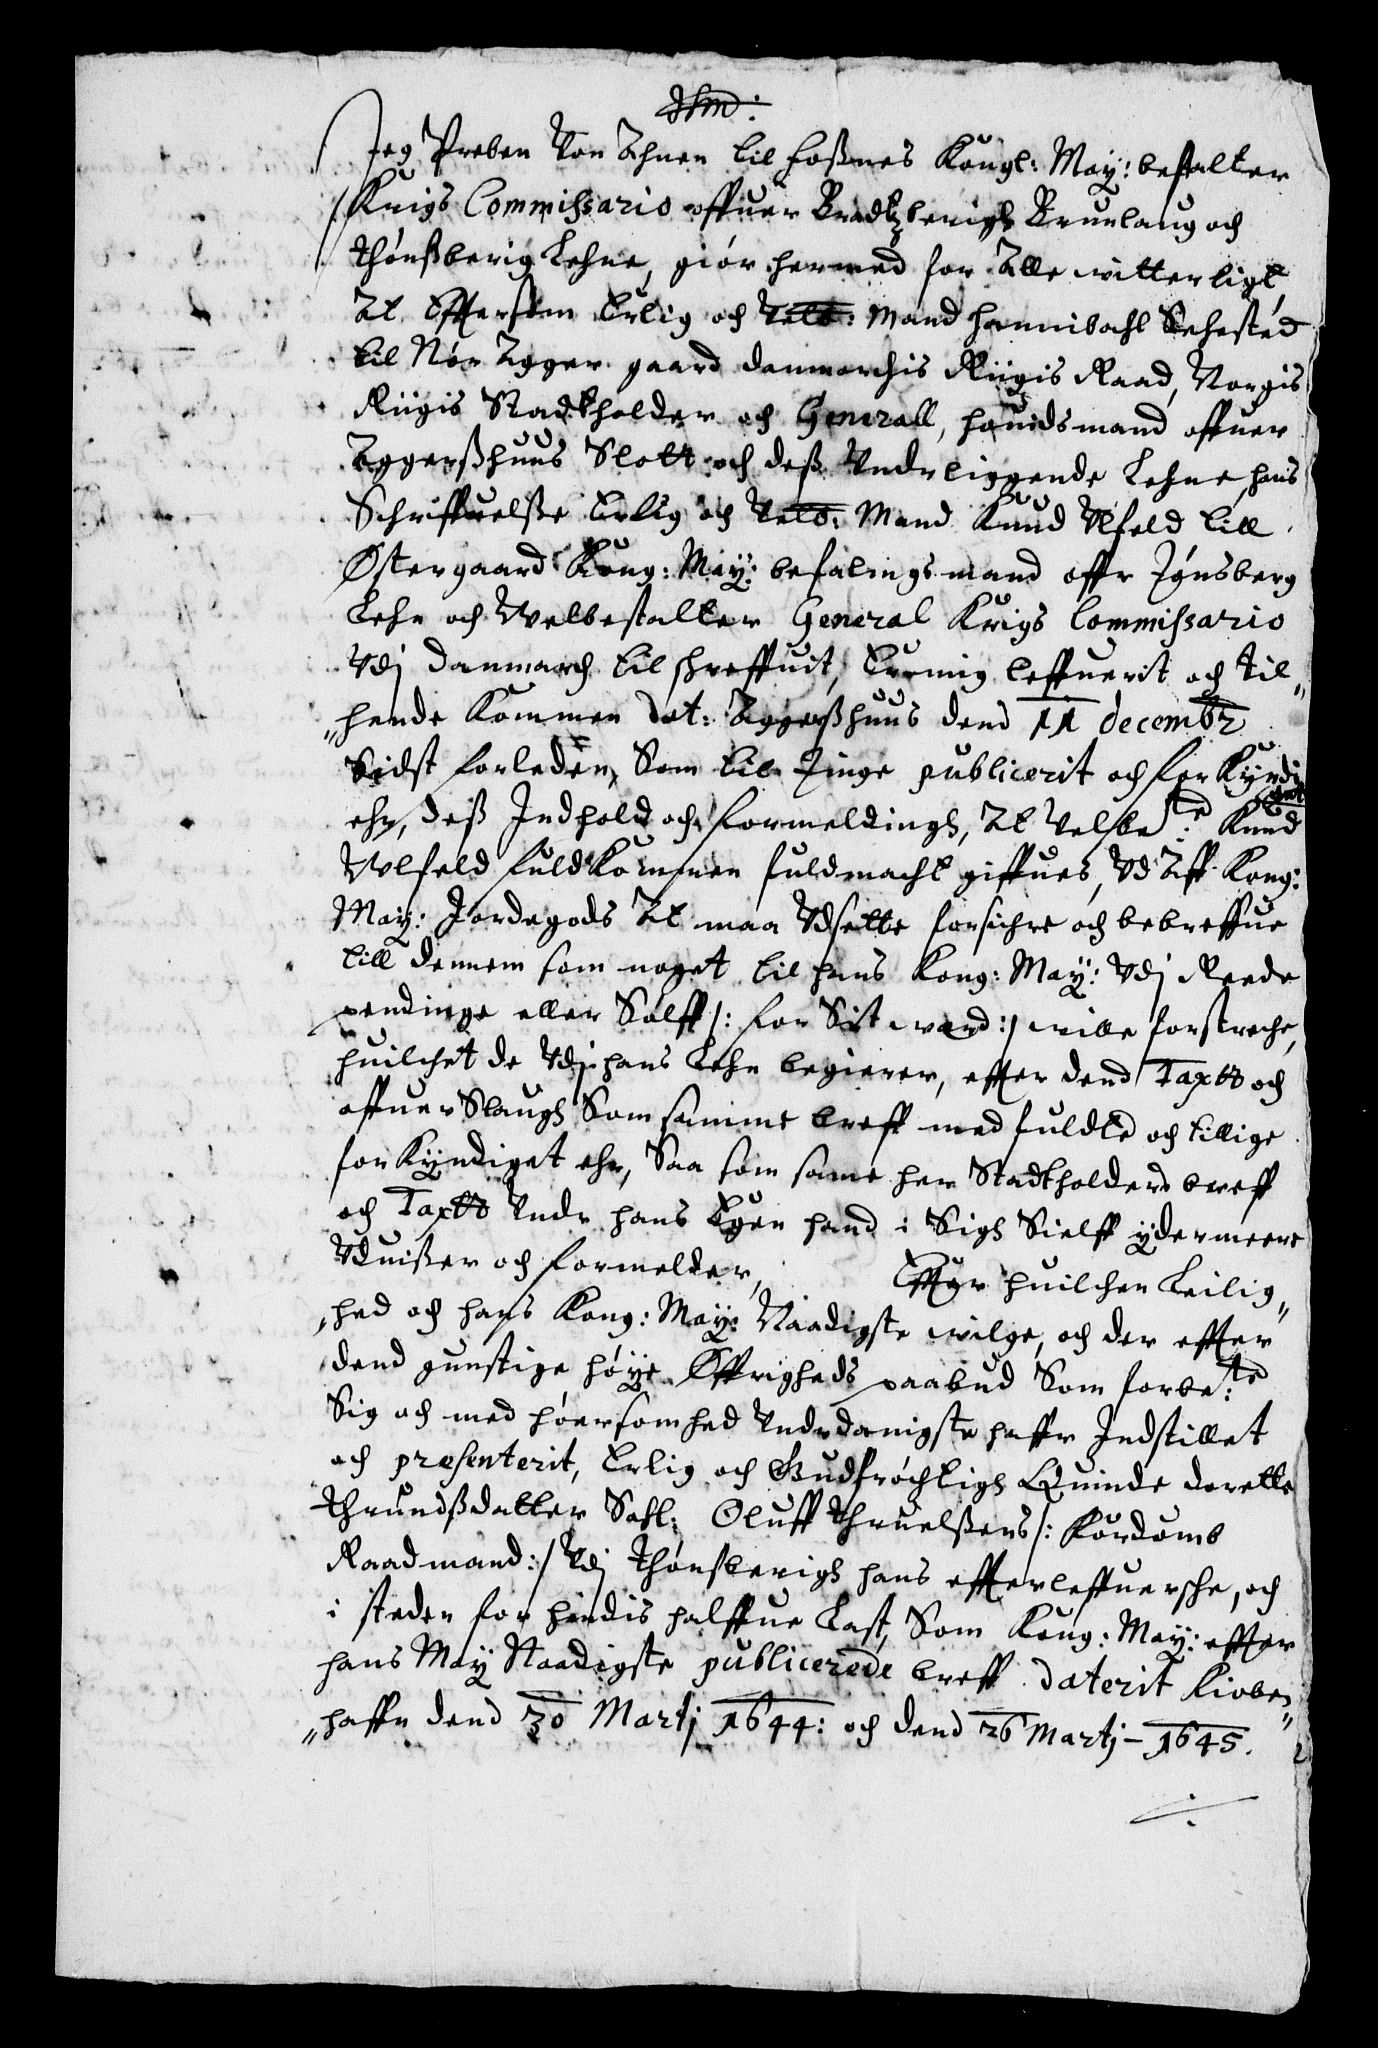 Jeg Preben Von Ahnen til Foßnes Kongl: May: bestalter
Krigs Commissario offuer Bradtzberigh Brunlaug och
Thønßberig Lehne, giør hermed for Alle witterligt
At Effterssom Erlig och Velb: Mand Hannibahl Sehested
til Nør Agger gaard Danmarchis Riigis Raad, Norgis
Riigis Stadtholder och Generall, høuidsmand offuer
Aggerßhuus Slott och deß Underliggende Lehne, hans
Schriffuelße Erlig och Velb: Mand Knud Ulfeld till
Østergaard Kong: May: befalings mand offr Tønsberg
Lehn och Welbestalter General Krigs Commissario
Udj Danmarch tilschreffuit, leffuerit och til„
„hende Kommen Dat: Aggerßhuus dend 11 decembr
Sidst forleden, Som til Tinge publicerit och forKyndi
ehr, deß Indhold och formeldingh, At Velbete: Knud
Ulfeld fuldKommen fuldmacht giffues, Ud Aff Kong:
May: Jordegods At maa Udsette forsichre och bebreffue
till dennem som noget til hans Kong: May: Udj Reede
pendinge eller Sølff /: for Sit werd :/ wille forstreche,
huilchet de Udj hans Lehn begierer, effter dend Taxtt och
offuerSlaugh Som samme breff medfuldte och tillige
forKyndiget ehr, Saa som same her Stadtholders breff
och Taxtt Under hans Egen hand i Sigh Sielff ydermeere
Uduißer och formelder, Effter huilchen Leilig„
„hed och hans Kong: May: Naadigste wilge, och der effter
dend gunstige høye Øffrigheds paabud Som forbete:
Sig och med hørsomhed Underdanigste haffr Indstillet
och præsenterit, Erlig och Gudfrøchtigh Quinde Dorette
Thrundßdatter Sahl: Oluff Thruelßens /: Fordomb
Raadmand :/ Udj Thønsberigh hans effterleffuersche, och
i steden for hindis halffue Last, Som Kong: May: effter
hans May Naadigste publicerede breff daterit Kiøben„
„haffn dend 30 Martj 1644: och dend 26 Martj – 1645.